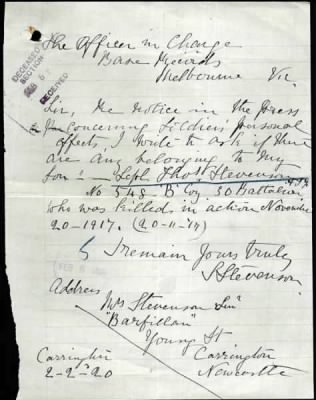 DECEASED
SECTION
RECEIVED
The Officer in Charge
Base Records
Melbourne Vic
Sir, Re notice in the Press
concerning Soldiers personal
effects, I write to ask if there
are any belonging to my
Son:- Thos Stevenson
No 548 "B" Coy 30 Battalion
who was killed in action November
20-1917. (20-11-17)
I remain Yours truly
S Stevenson
Address
Mrs Stevenson Senr
"Barfillan"
Young St
Carrington
Carrington
2-2-20
Newcastle